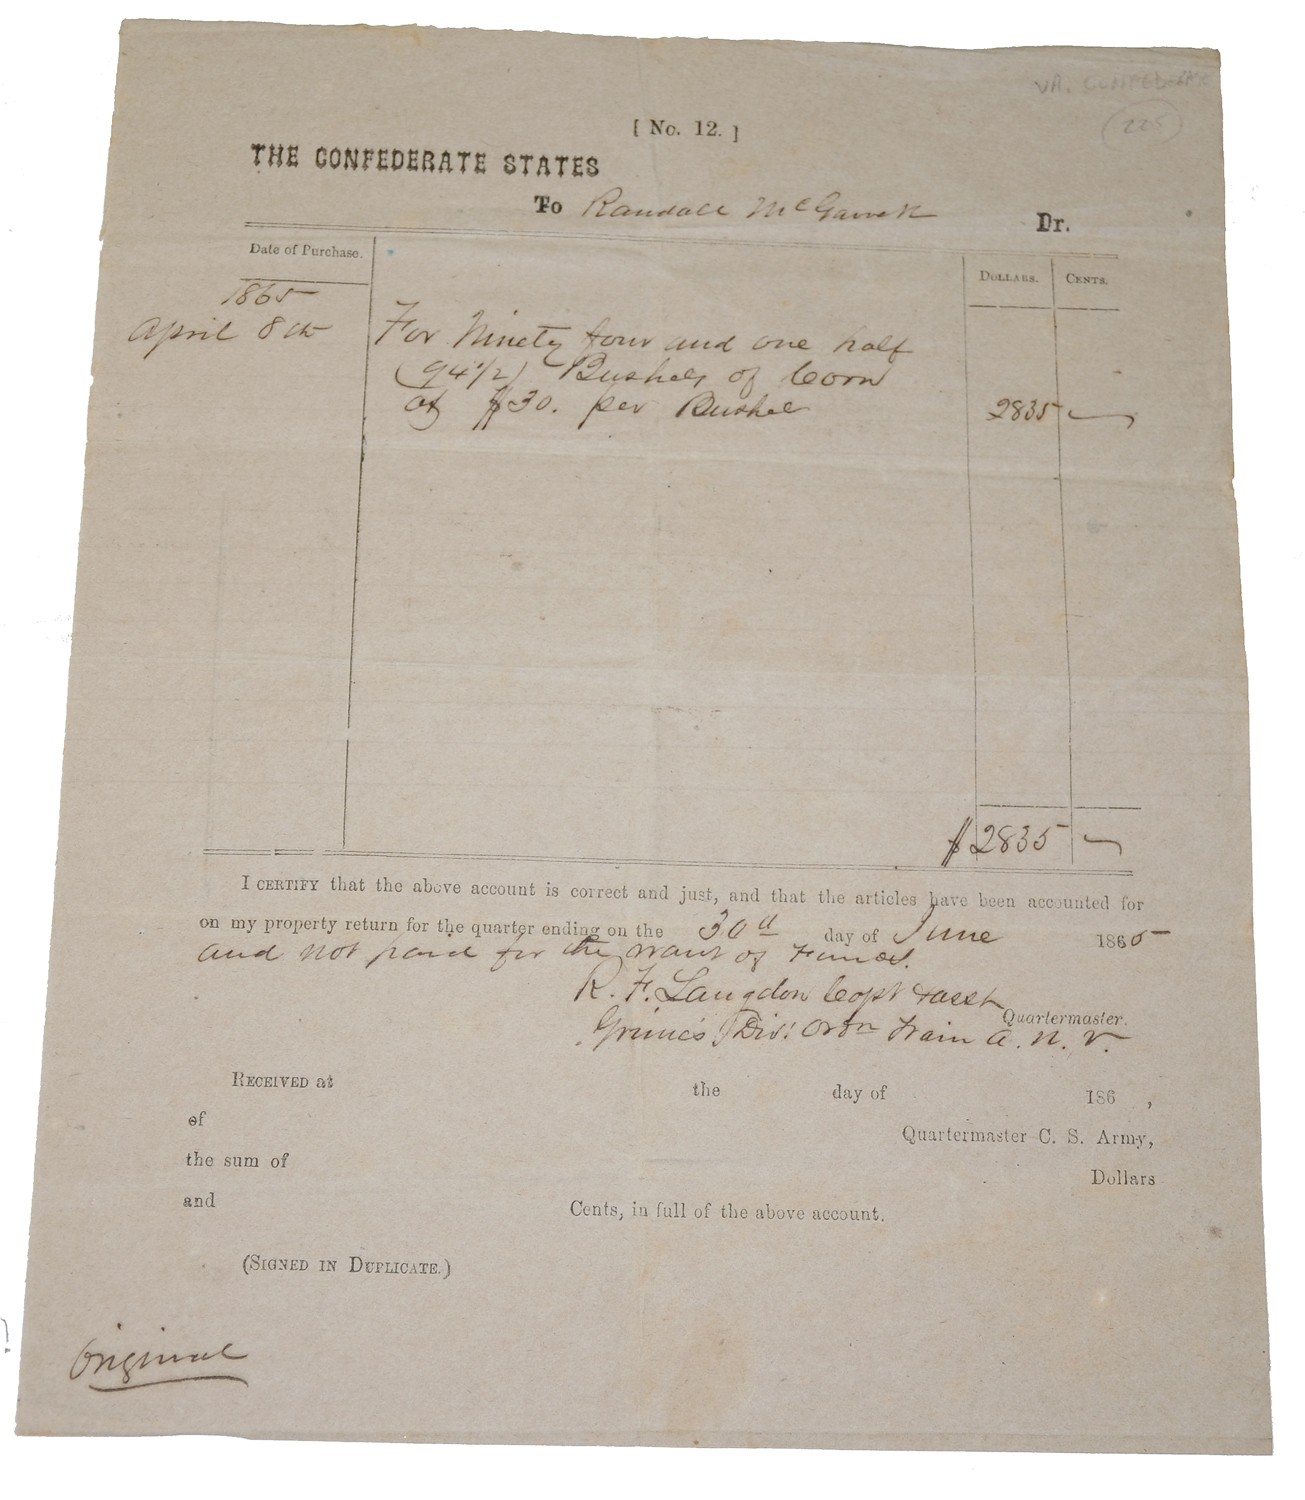 VA. CONFEDERATE
225
[ No. 12. ]
THE CONFEDERATE STATES
To Randall Dr.
Date of Purchase. DOLLARS. CENTS.
1865
April 8th For Ninety four and one half
(94 1/2) Bushels of Corn
at $30. per Bushel 2835 —
$2835 —
I CERTIFY that the above account is correct and just, and that the articles have been accounted for
on my property return for the quarter ending on the 30d day of June 1865
and not paid for the want of Funds.
R. F. Langdon Capt & asst
Quartermaster.
Grimes Div. Ordn Train A. N. V.
RECEIVED at the day of 186 ,
of Quartermaster C. S. Army,
the sum of Dollars
and Cents, in full of the above account.
(SIGNED IN DUPLICATE.)
Original